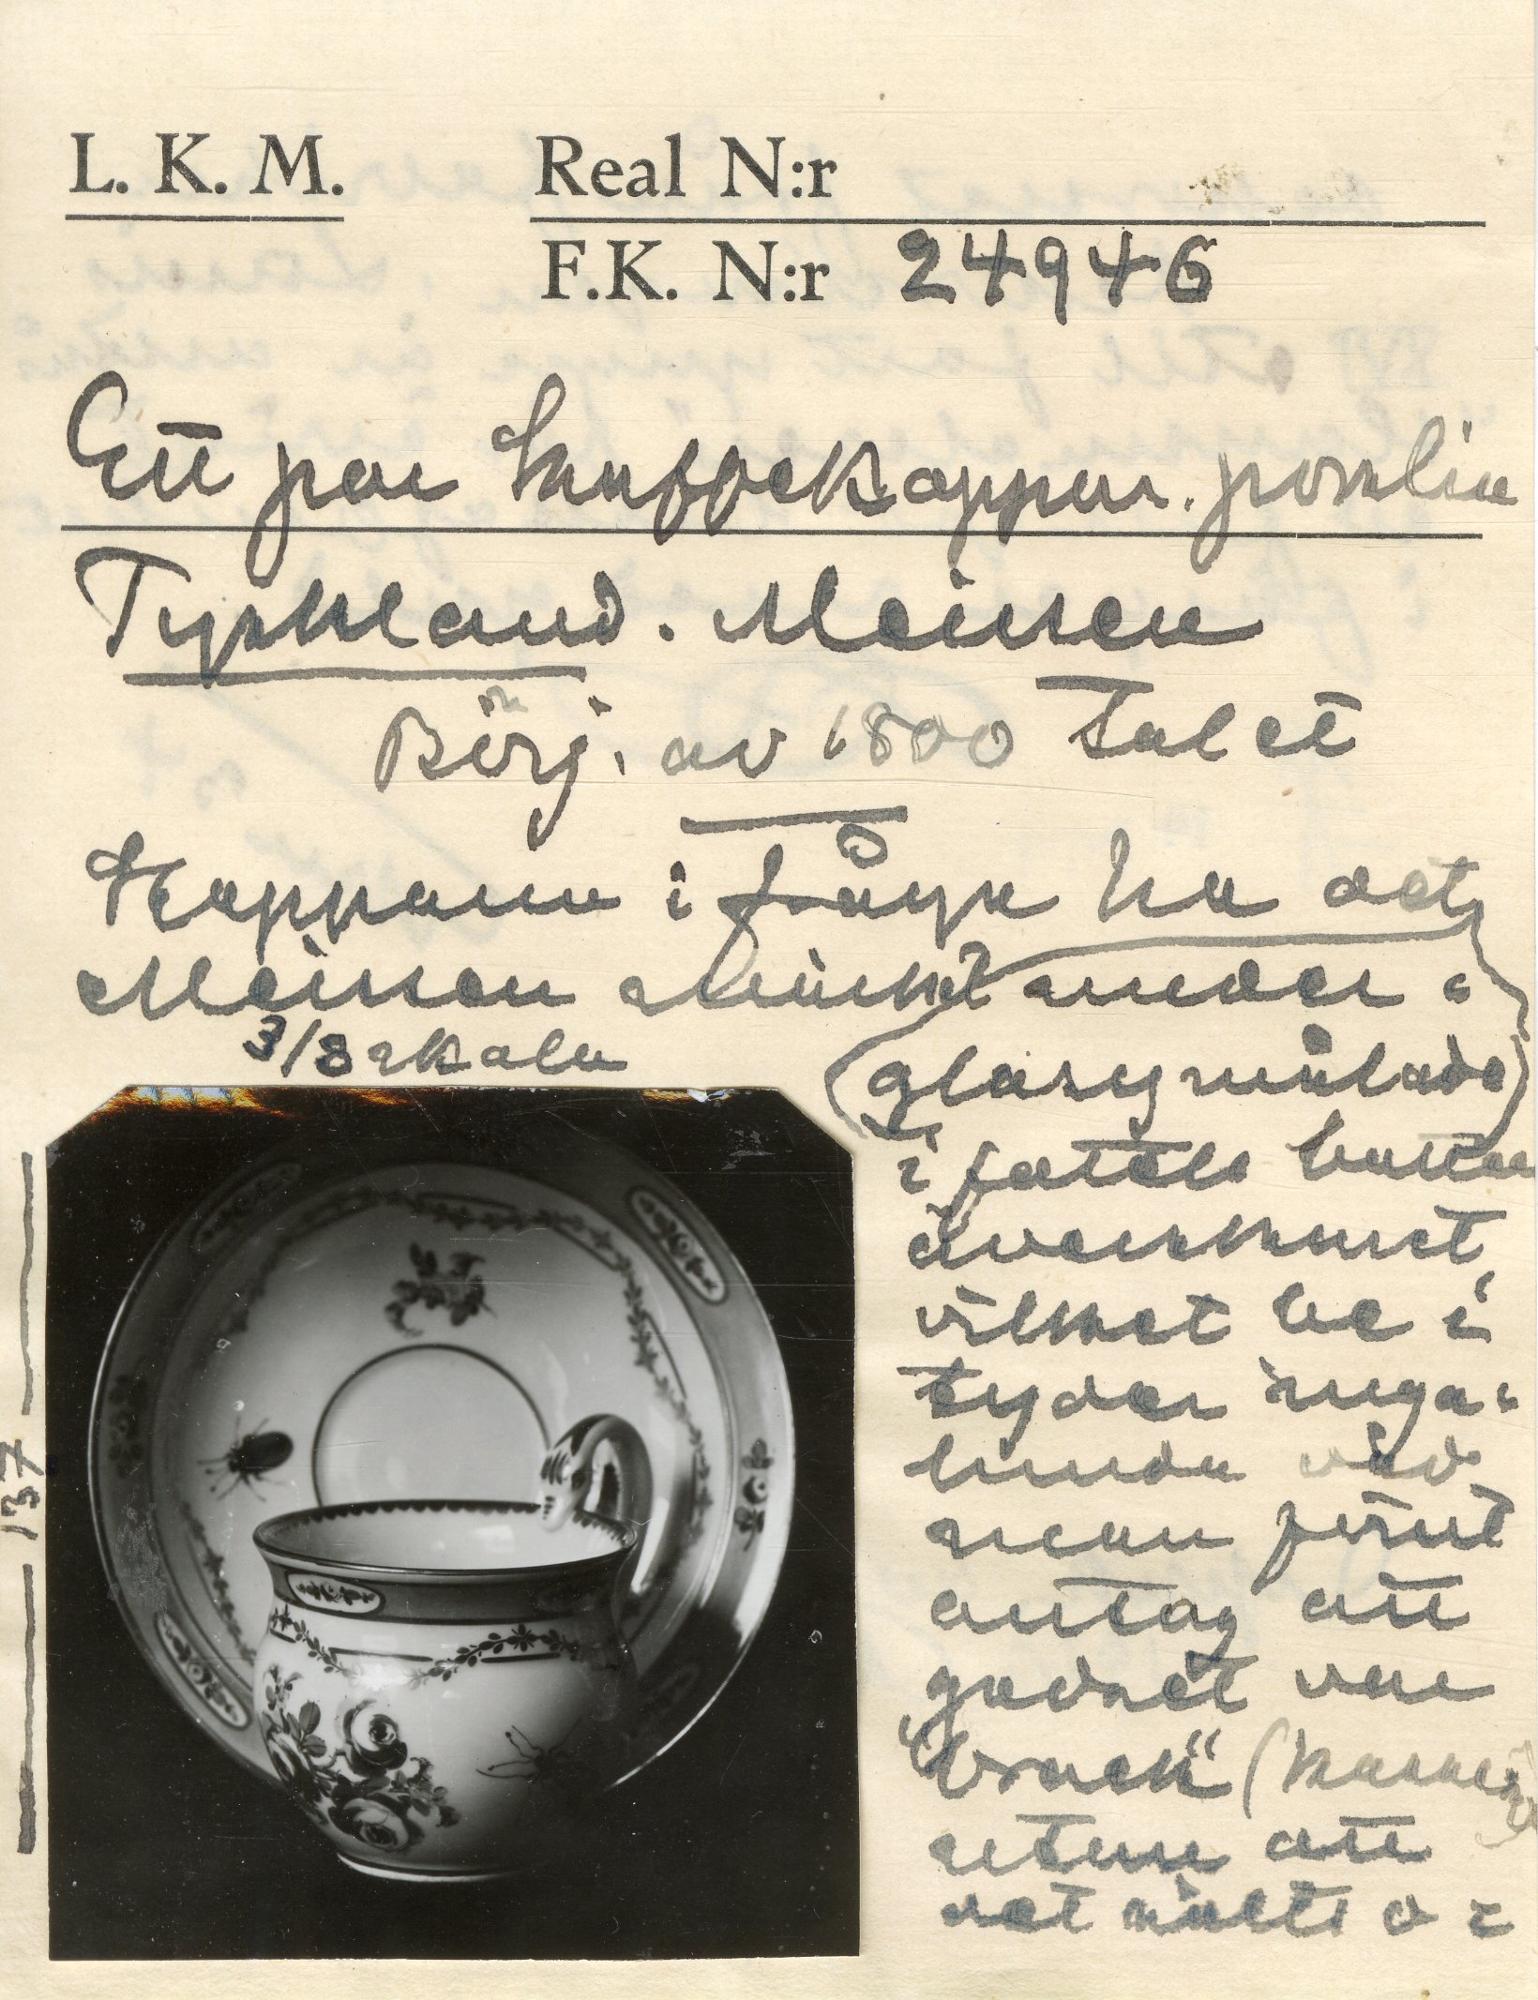 L. K. M. Real N:r
F.K. N:r 24946
Ett par kaffekoppar. porslin
Tyskland. Meissen
Börj. av 1800 talet
Kopparne i fråga ha det
Meissen märket under =
(glasyrmålade)
3/8 skala
i fatets botten
överskuret,
vilket be =
tyder inga =
lunda vad
man förut
antag att
godset var
"brack" (kassera
utan att
det målts o =
137